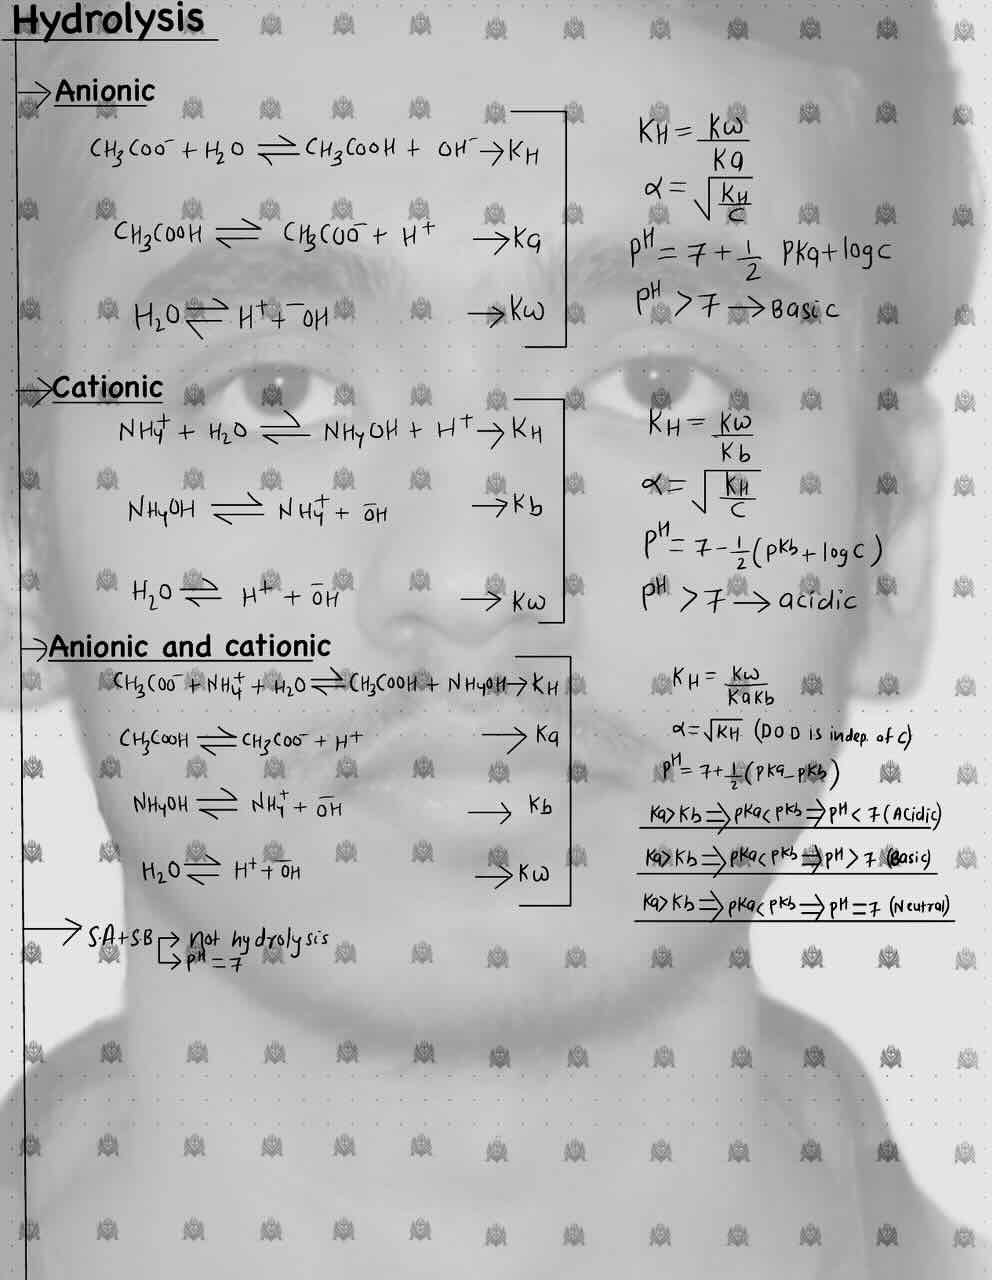 Hydrolysis
→ Anionic
CH₃COO⁻ + H₂O ⇌ CH₃COOH + OH⁻ → KH
CH₃COOH ⇌ CH₃COO⁻ + H⁺ → Ka
H₂O ⇌ H⁺ + ⁻OH → Kw
KH = Kw/Ka
α = √(KH/C)
pH = 7 + 1/2 PKa + log C
pH > 7 → Basic
→ Cationic
NH₄⁺ + H₂O ⇌ NH₄OH + H⁺ → KH
NH₄OH ⇌ NH₄⁺ + ⁻OH → Kb
H₂O ⇌ H⁺ + ⁻OH → Kw
KH = Kw/Kb
α = √(KH/C)
pH = 7 - 1/2 (pKb + log C)
pH > 7 → acidic
→ Anionic and cationic
CH₃COO⁻ + NH₄⁺ + H₂O ⇌ CH₃COOH + NH₄OH → KH
CH₃COOH ⇌ CH₃COO⁻ + H⁺ → Ka
NH₄OH ⇌ NH₄⁺ + ⁻OH → Kb
H₂O ⇌ H⁺ + ⁻OH → Kw
KH = Kw/KaKb
α = √KH (DOD is indep. of C)
pH = 7 + 1/2 (pKa - pKb)
Ka > Kb ⇒ pKa < pKb ⇒ pH < 7 (Acidic)
Ka > Kb ⇒ pKa < pKb ⇒ pH > 7 (Basic)
Ka > Kb ⇒ pKa < pKb ⇒ pH = 7 (Neutral)
→ S.A + S.B → not hydrolysis
→ pH = 7